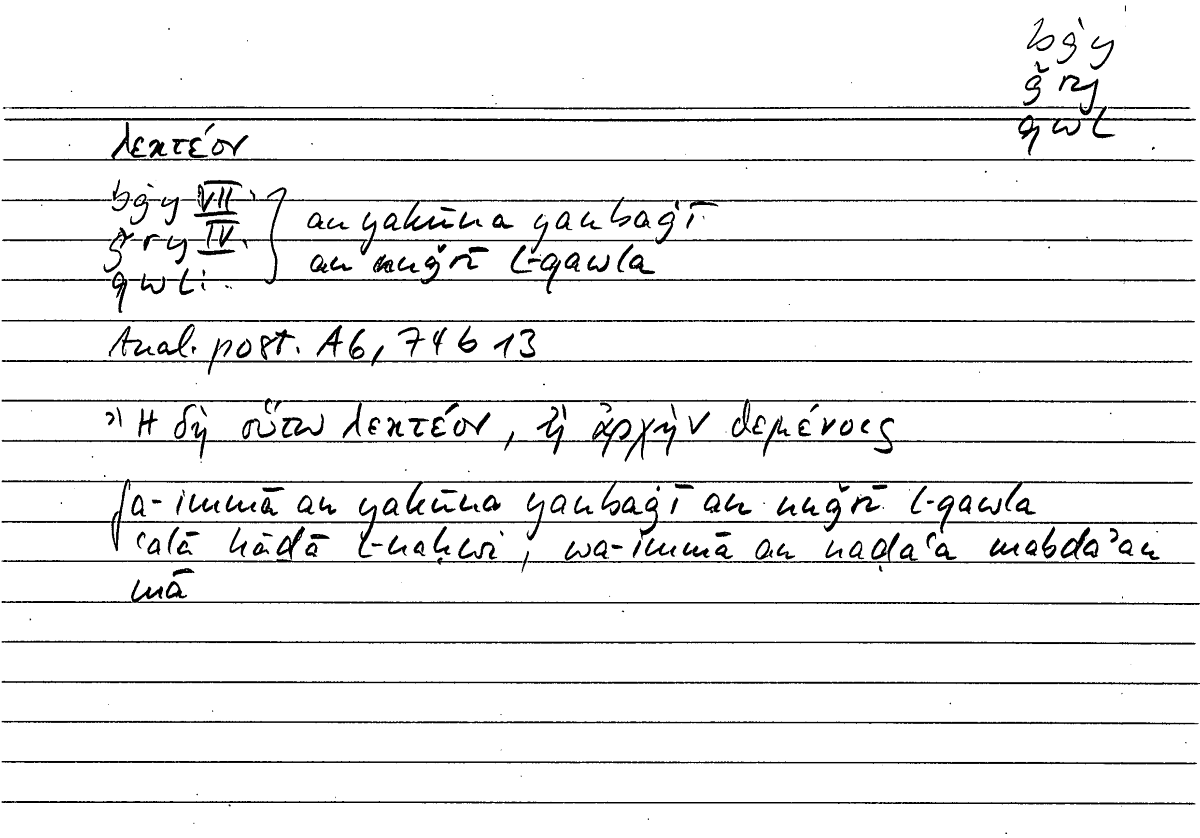 bġy
ǧry
qwl
λεκτέον
bġy VII.
ǧry IV.
qwl:
an yakūna yanbaġī
an nuǧrī l-qawla
Anal. post. A6, 74 b 13
Ἢ δὴ οὕτω λεκτέον, ἢ ἀρχὴν θεμένοις
fa-immā an yakūna yanbaġī an nuǧrī l-qawla
ʿalā hāḏā l-naḥwi, wa-immā an naḍaʿa mabdaʾan
mā